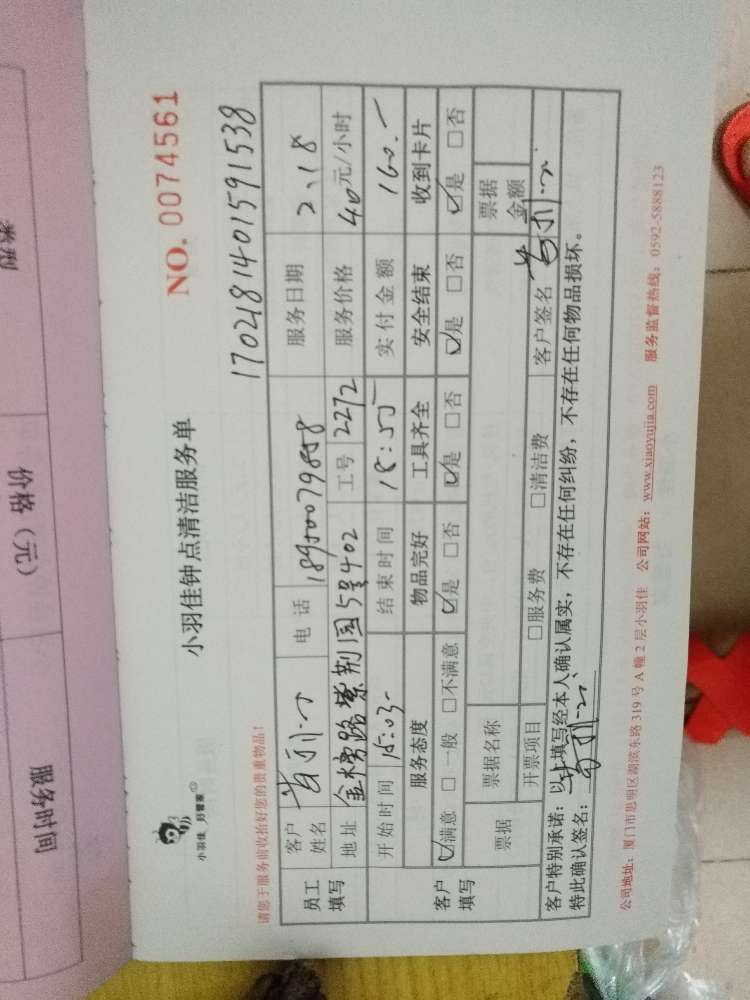 小羽佳 好管家
小羽佳钟点清洁服务单
NO. 0074561
请您于服务前收拾好您的贵重物品！
1702181401591538
员工填写 客户姓名 电话 18950079858 服务日期 2.18
地址 金榜路紫荆园5号402 工号 2272 服务价格 40元/小时
开始时间 15:03 结束时间 18:55 实付金额 160.-
客户填写 服务态度 物品完好 工具齐全 安全结束 收到卡片
☑满意 □一般 □不满意 ☑是 □否 ☑是 □否 ☑是 □否 ☑是 □否
票据 票据名称 票据金额
开票项目 □服务费 □清洁费 客户签名
客户特别承诺：以上填写经本人确认属实，不存在任何纠纷，不存在任何物品损坏。
特此确认签名：
公司地址：厦门市思明区湖滨东路 319 号 A 幢 2 层小羽佳 公司网站：www.xiaoyujia.com 服务监督热线：0592-5888123
类型
价格（元）
服务时间